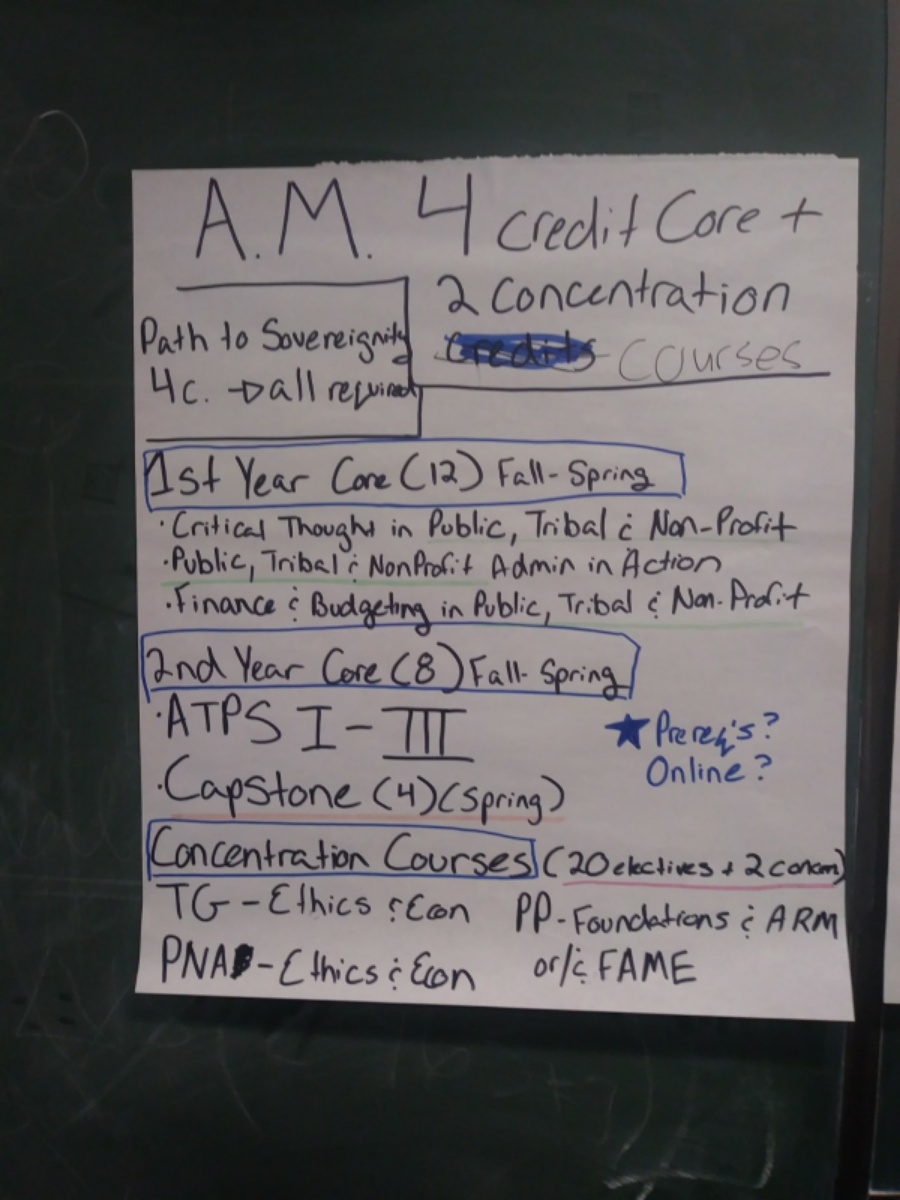 A.M. 4 credit Core +
2 Concentration
Credits Courses
Path to Sovereignity
4c. → all required
1st Year Core (12) Fall-Spring
· Critical Thought in Public, Tribal & Non-Profit
· Public, Tribal & NonProfit Admin in Action
· Finance & Budgeting in Public, Tribal & Non-Profit
2nd Year Core (8) Fall-Spring
· ATPS I - III
★ Prereq's?
Online?
· Capstone (4) (Spring)
Concentration Courses (20 electives + 2 concen)
TG - Ethics & Econ
PP - Foundations & ARM
or/& FAME
PNA - Ethics & Econ